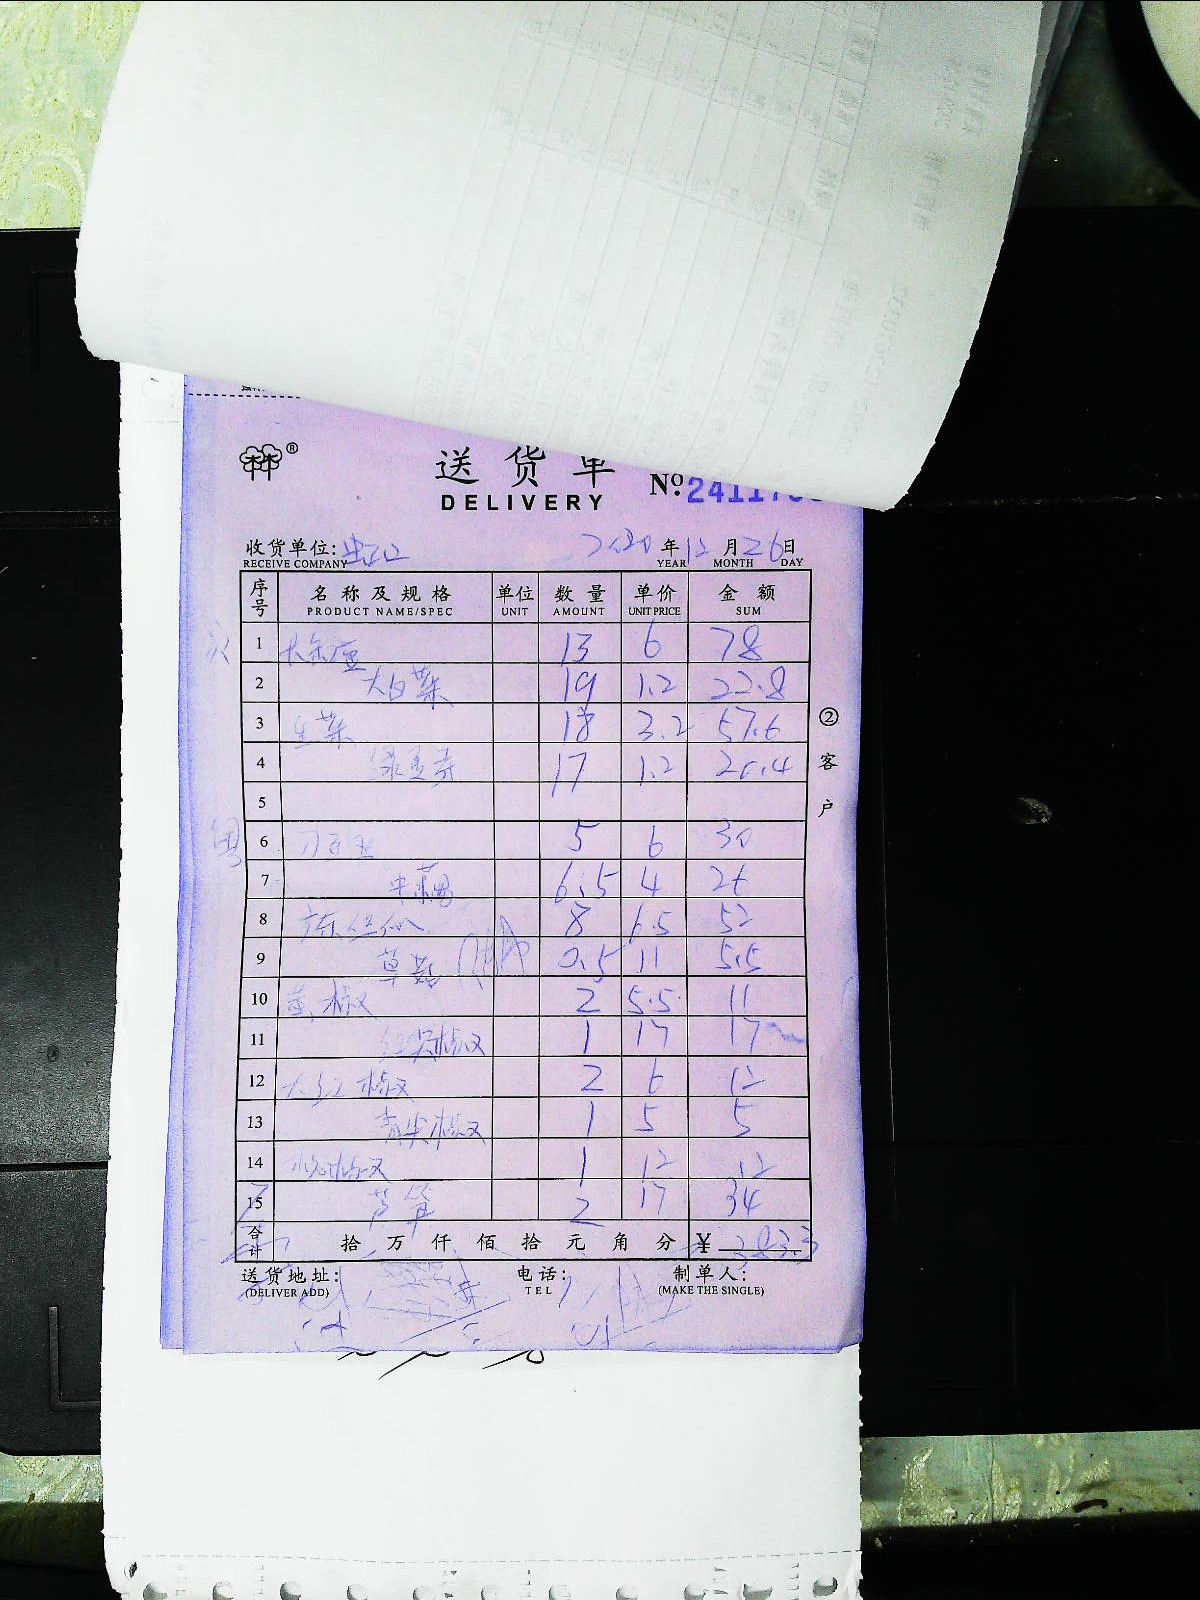 送货单
DELIVERY
№ 24117
收货单位: 2020 年 12 月 26 日
RECEIVE COMPANY YEAR MONTH DAY
序号 名称及规格 单位 数量 单价 金额
PRODUCT NAME/SPEC UNIT AMOUNT UNIT PRICE SUM
1 13 6 78
2 大白菜 19 1.2 22.8
3 生菜 18 3.2 57.6
4 17 1.2 20.4
5
6 5 6 30
7 6.5 4 26
8 8 6.5 52
9 草菇 0.5 11 5.5
10 黄椒 2 5.5 11
11 红尖椒 1 17 17
12 大红椒 2 6 12
13 青尖椒 1 5 5
14 1 12 12
15 芦笋 2 17 34
合计 拾 万 仟 佰 拾 元 角 分 ¥ 383.3
送货地址: 电话: 制单人:
(DELIVER ADD) TEL (MAKE THE SINGLE)
②客户